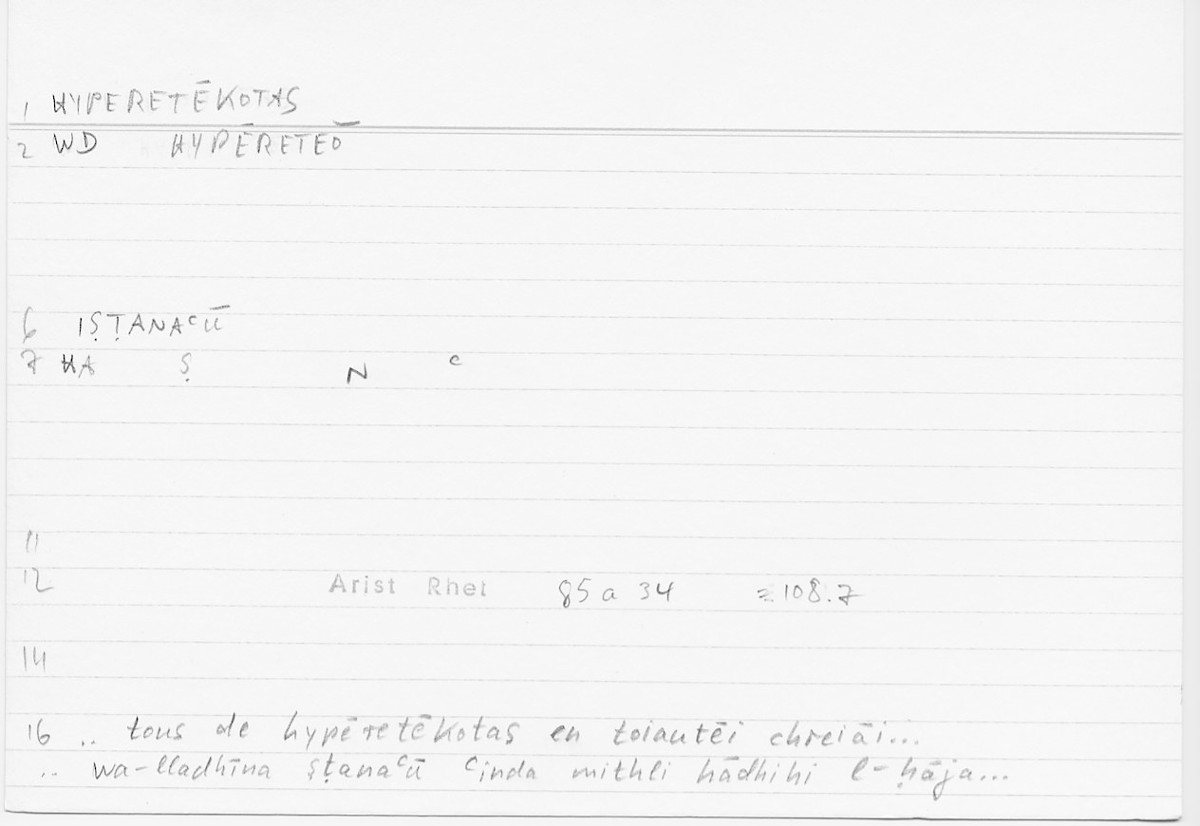 1 HYPERETĒKOTAS
2 WD HYPĒRETEŌ
6 IṢṬANAᶜŪ
7 HA Ṣ N ᶜ
11
12 Arist Rhet 85 a 34 = 108.7
14
16 .. tous de hypēretēkotas en toiautēi chreiāi...
.. wa-lladhīna ṣṭanaᶜū ᶜinda mithli hādhihi l-ḥāja...